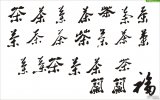 茶茶茶茶茶茶茶
茶茶茶茶茶茶茶
茶茶茶茶茶茶
福